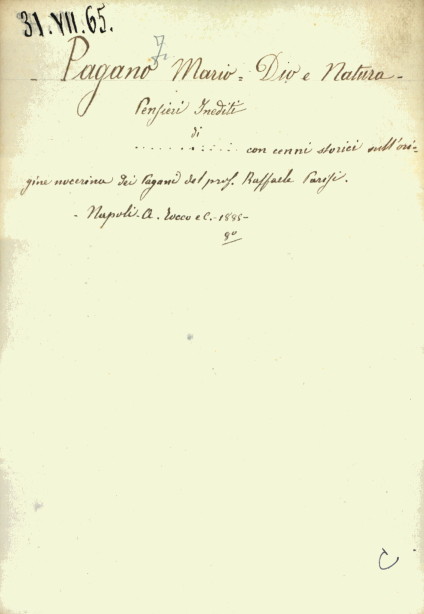 31.VII.65.
- Pagano Mario = Dio e Natura -
Pensieri Inediti
di
. . . . . . . . . . . . con cenni storici sull'ori-
gine nocerina dei Pagani del prof. Raffaele Parisi.
- Napoli. A. Tocco e C. - 1885 -
8º
C